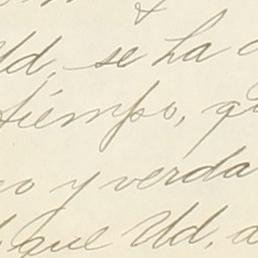 Ud, se ha
tiempo,
y verda
que Ud,